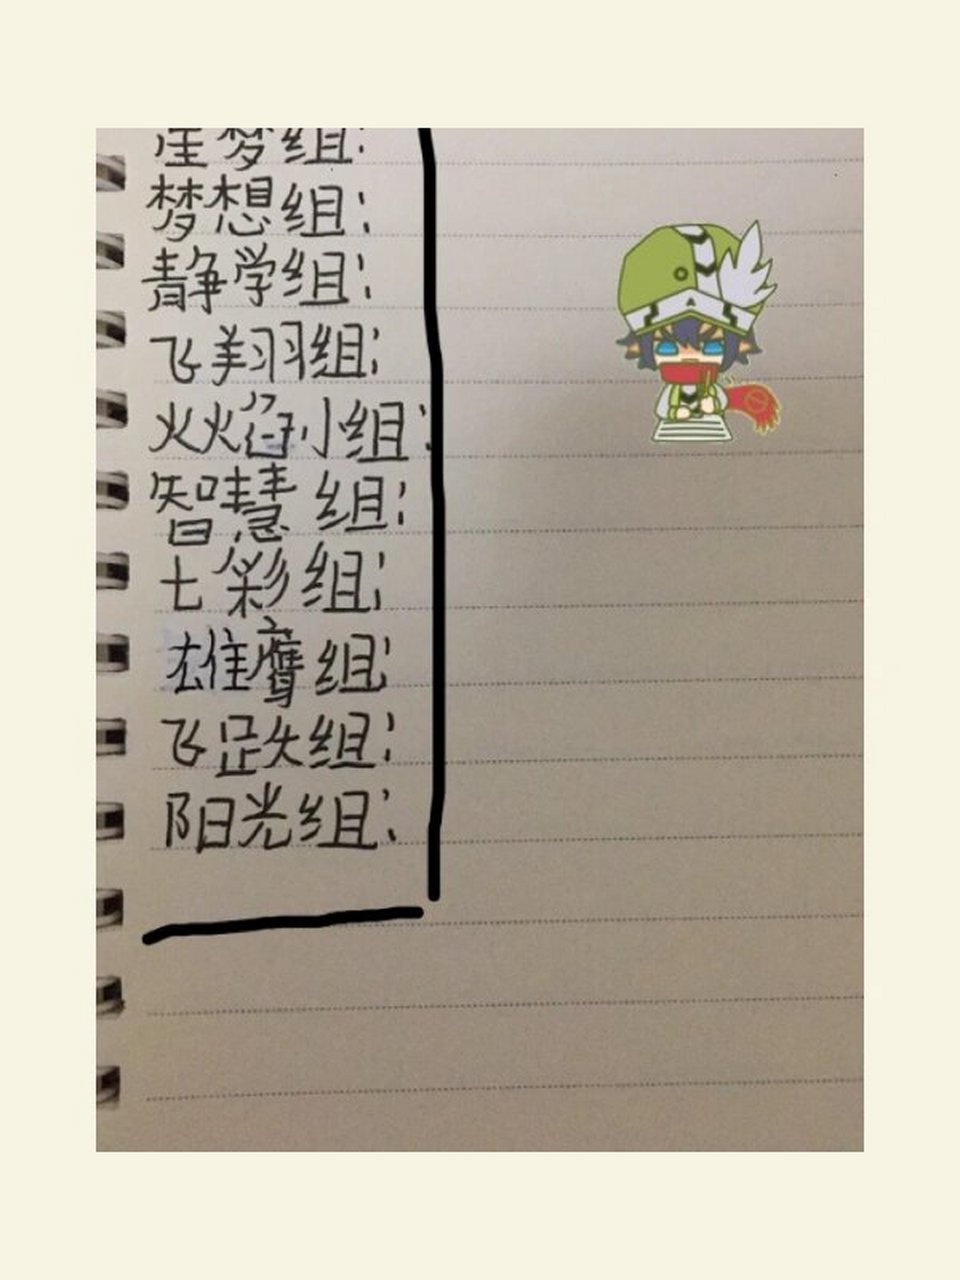 星梦组:
梦想组:
静学组:
飞翔组:
火火焰小组:
智慧组:
七彩组:
雄鹰组:
飞跃组:
阳光组: